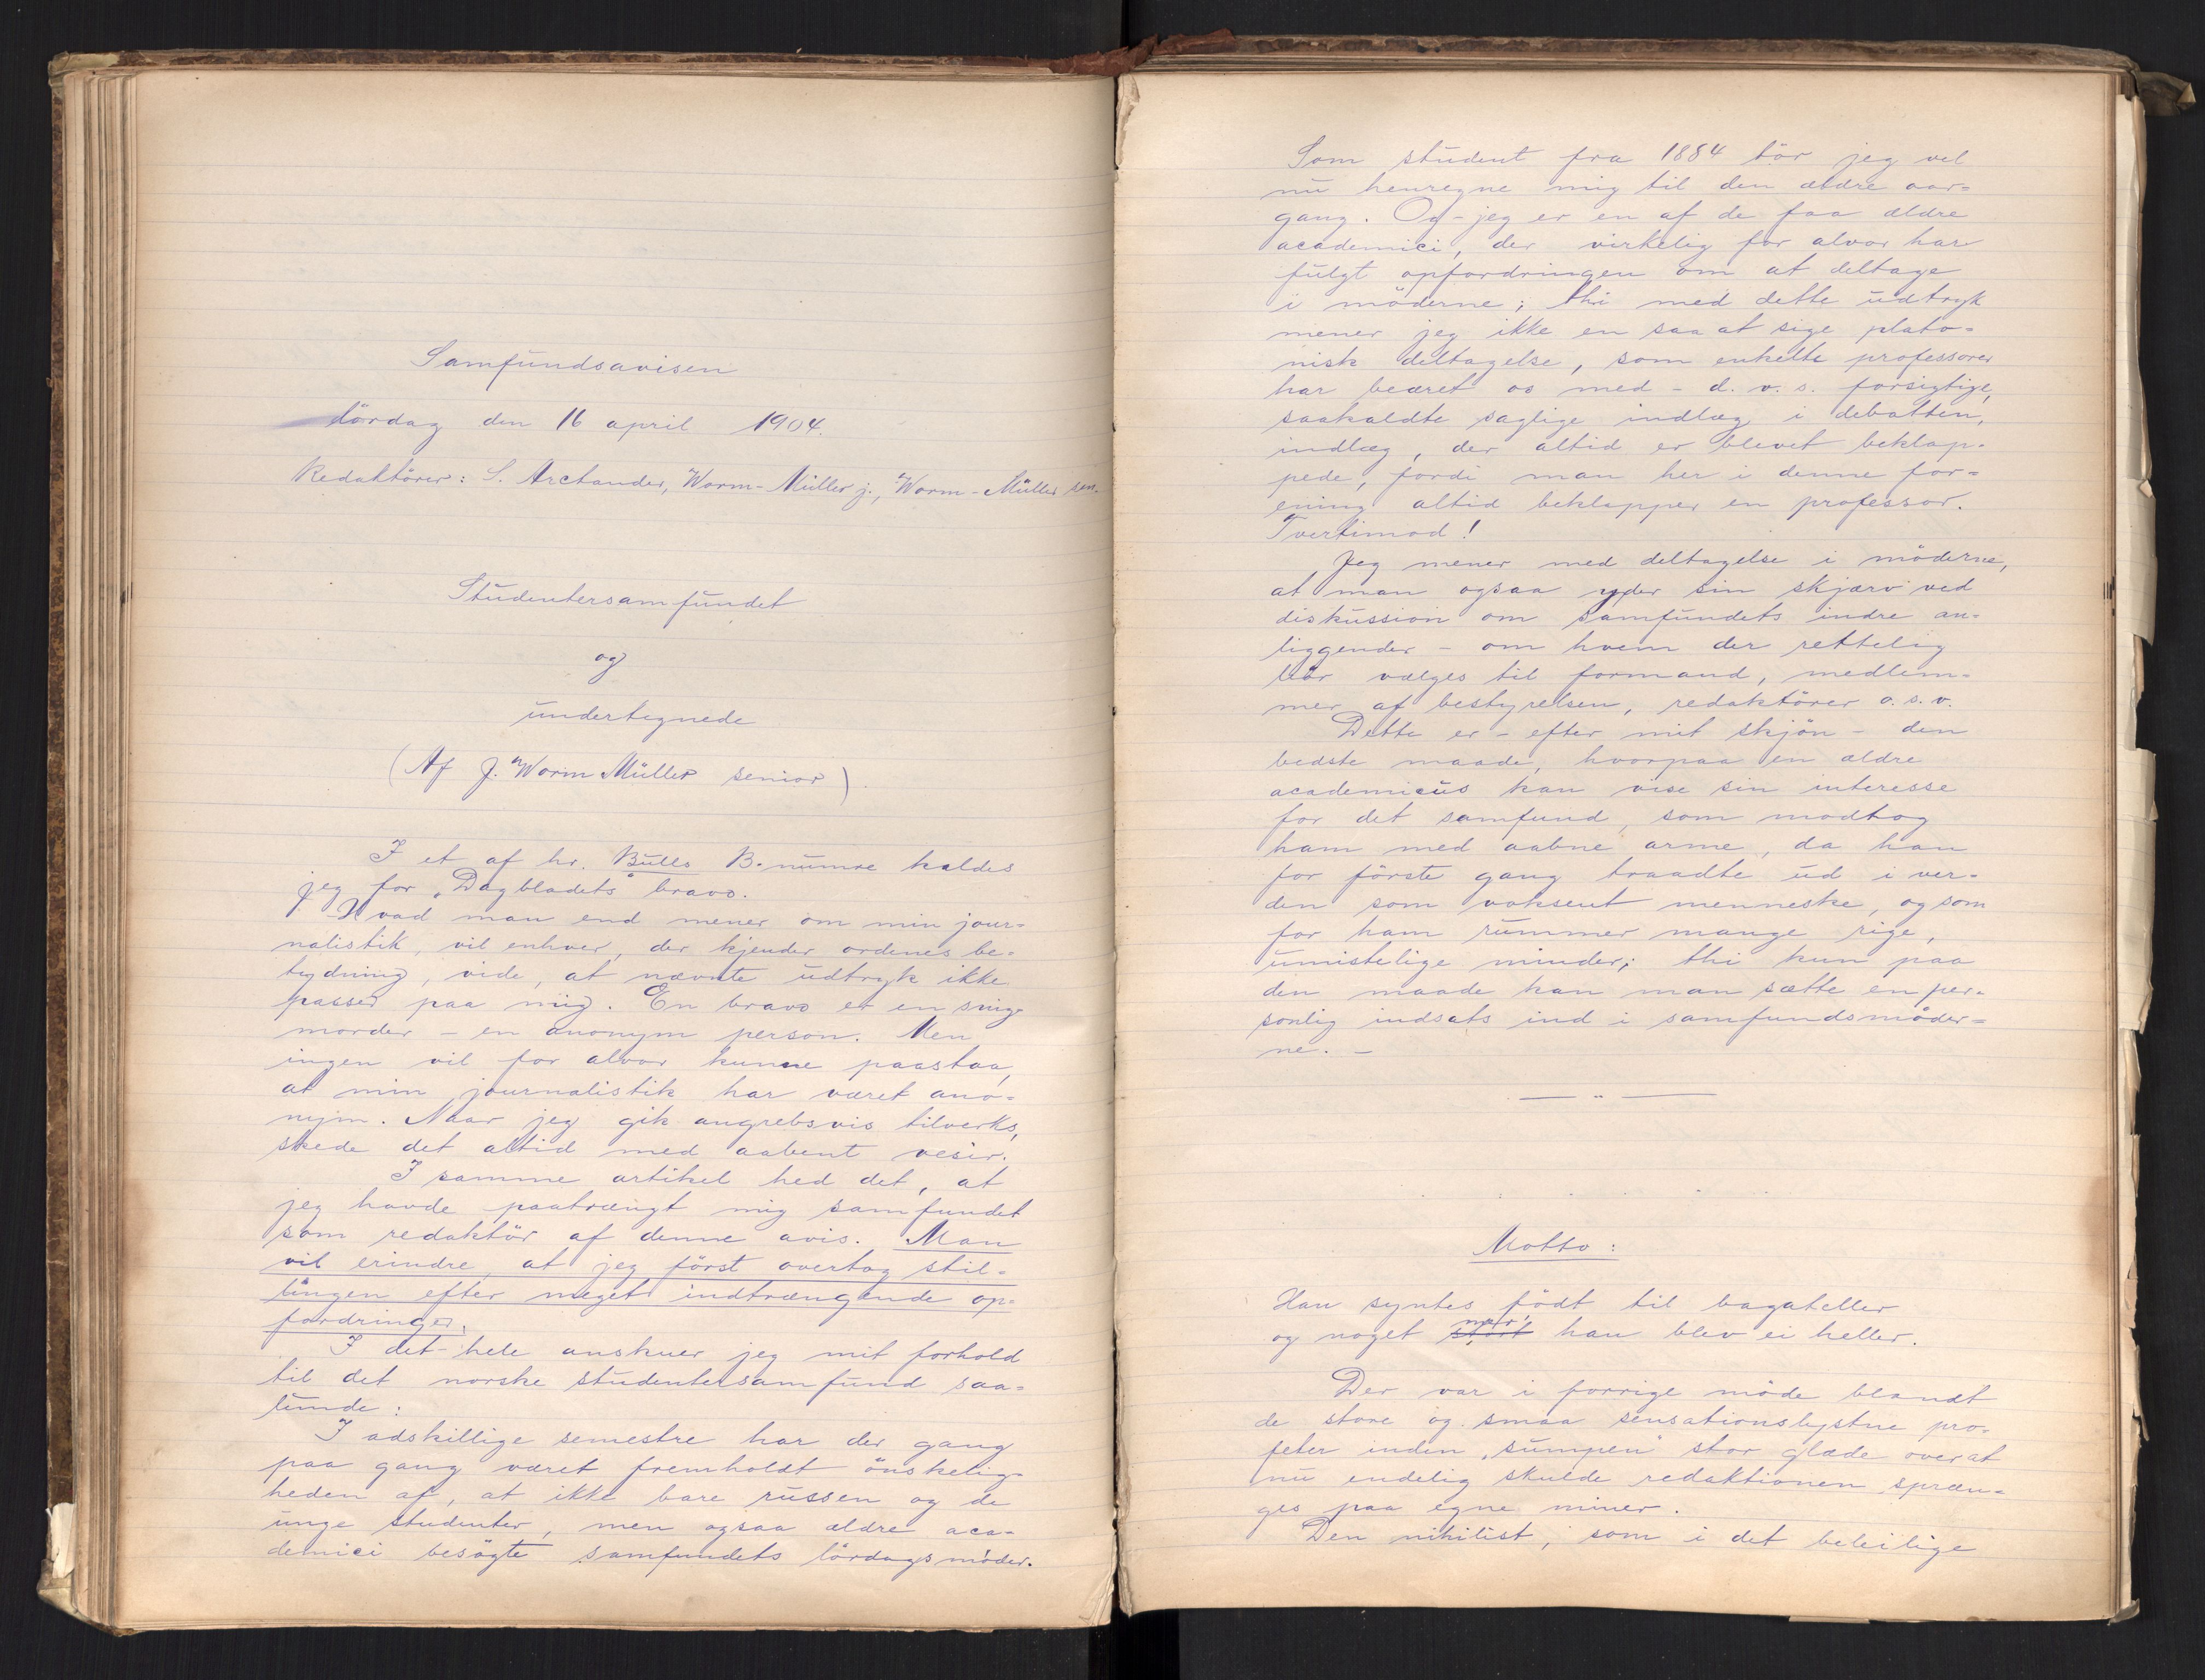 Samfundsavisen
lördag den 16 april 1904.
Redaktörer: S. Arctander, Worm-Müller j., Worm-Müller sen.
Studentersamfundet
og
undertegnede
(Af J. Worm Müller senior).
I et af hr. Bulls B-numre kaldes
jeg for „Dagbladets" bravo.
Hvad man end mener om min jour=
nalistik, vil enhver, der kjender ordenes be=
tydning, vide, at nævnte udtryk ikke
passer paa mig. En bravo er en snig-
morder – en anonym person. Men
ingen vil for alvor kunne paastaa,
at min journalistik har været ano=
nym. Naar jeg gik angrebsvis tilverks,
skede det altid med aabent vesir.
I samme artikel hed det, at
jeg havde paatrængt mig samfundet
som redaktör af denne avis. Man
vil erindre, at jeg först overtog stil=
lingen efter meget indtrængende op=
fordringer.
I det hele anskuer jeg mit forhold
til det norske studentersamfund saa=
lunde:
I adskillige semestre har der gang
paa gang været fremholdt önskelig=
heden af, at ikke bare russen og de
unge studenter, men ogsaa ældre aca=
demici besögte samfundets lördagsmöder.
Som student fra 1884 tör jeg vel
nu henregne mig til den ældre aar=
gang. Og – jeg er en af de faa ældre
academici, der virkelig for alvor har
fulgt opfordringen om at deltage
i möderne; thi med dette udtryk
mener jeg ikke en saa at sige plato=
nisk deltagelse, som enkelte professorer
har beæret os med – d. v. s. forsigtige,
saakaldte saglige indlæg i debatten,
indlæg, der altid er blevet beklap-
pede, fordi man her i denne for=
ening altid beklapper en professor.
Tvertimod!
Jeg mener med deltagelse i möderne,
at man ogsaa yder sin skjærv ved
diskussion om samfundets indre an=
liggender – om hvem der rettelig
bör vælges til formand, medlem=
mer af bestyrelsen, redaktörer o. s. v.
Dette er – efter mit skjön – den
bedste maade, hvorpaa en ældre
academicus kan vise sin interesse
for det samfund, som modtog
ham med aabne arme, da han
for förste gang traadte ud i ver=
den som voksent menneske, og som
for ham rummer mange rige,
umistelige minder; thi kun paa
den maade kan man sætte en per=
sonlig indsats ind i samfundsmöder=
ne. –
Motto:
Han syntes födt til bagateller
mer
og noget stort han blev ei heller.
Der var i forrige möde blandt
de store og smaa sensationslystne pro=
feter inden „sumpen" stor glæde over at
nu endelig skulde redaktionen spræn=
ges paa egne miner.
Den nihilist, som i det beleilige